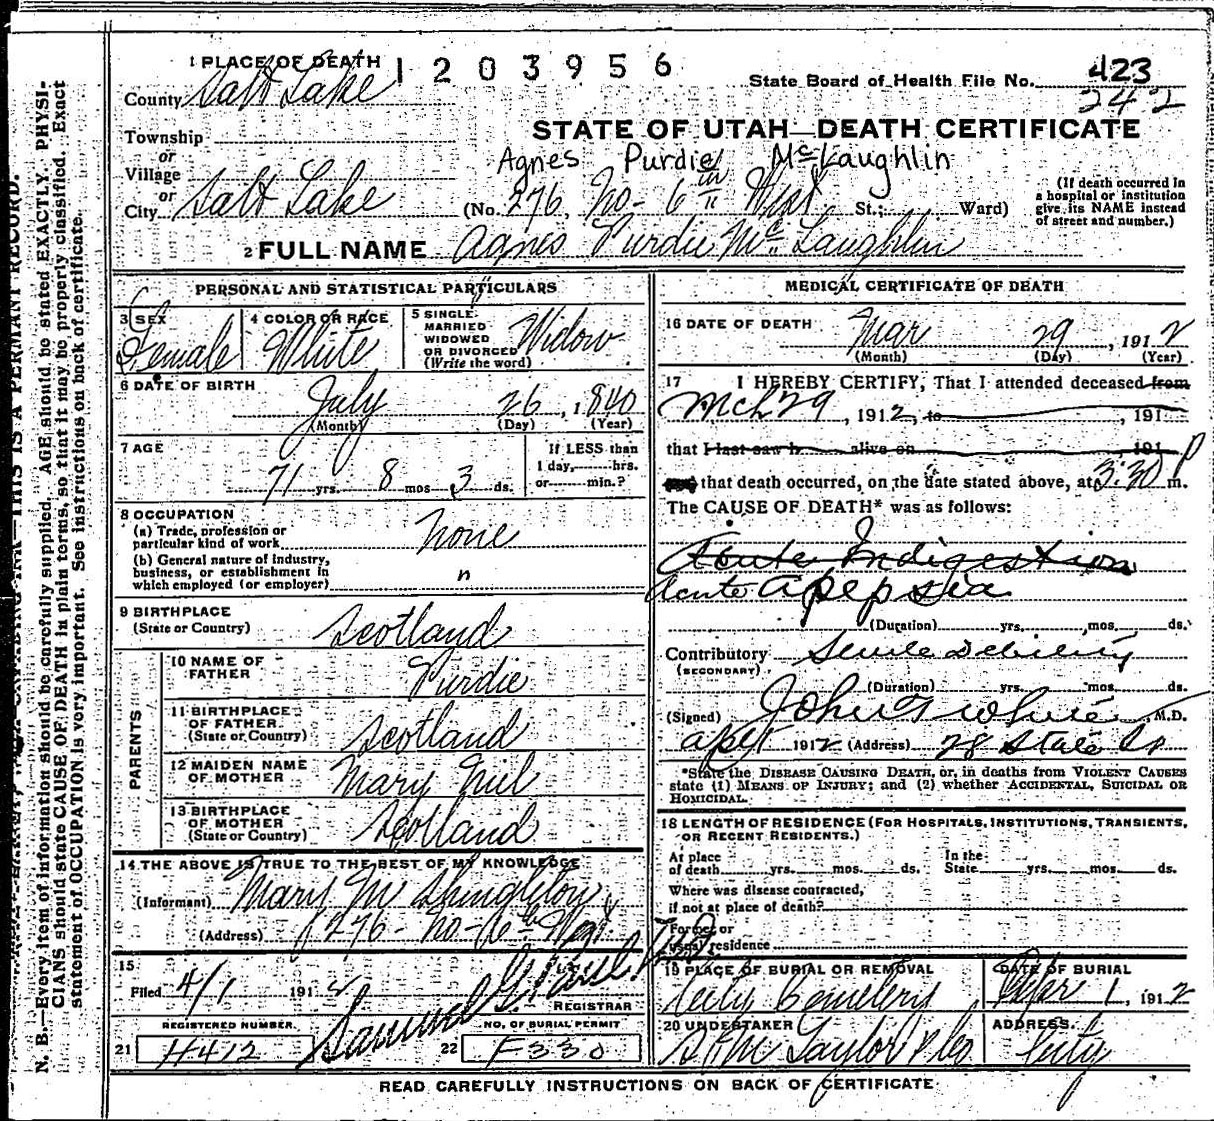 1 PLACE OF DEATH 1203956
State Board of Health File No. 423
County Salt Lake 242
STATE OF UTAH—DEATH CERTIFICATE
Township
or
Village
or
City Salt Lake
Agnes Purdie McLaughlin
(No. 276, No- 6th West St.; Ward)
(If death occurred in
a hospital or institution
give its NAME instead
of street and number.)
2 FULL NAME Agnes Purdie McLaughlin
PERSONAL AND STATISTICAL PARTICULARS
3 SEX Female
4 COLOR OR RACE White
5 SINGLE
MARRIED
WIDOWED
OR DIVORCED
(Write the word) Widow
6 DATE OF BIRTH
July 26, 1840
(Month) (Day) (Year)
7 AGE
71 yrs. 8 mos 3 ds.
If LESS than
1 day, hrs.
or min.?
8 OCCUPATION
(a) Trade, profession or
particular kind of work None
(b) General nature of industry,
business, or establishment in
which employed (or employer) n
9 BIRTHPLACE
(State or Country) Scotland
PARENTS
10 NAME OF
FATHER Purdie
11 BIRTHPLACE
OF FATHER
(State or Country) Scotland
12 MAIDEN NAME
OF MOTHER Mary
13 BIRTHPLACE
OF MOTHER
(State or Country) Scotland
14 THE ABOVE IS TRUE TO THE BEST OF MY KNOWLEDGE
(Informant) Mary M Shingleton
(Address) 276- No- 6th West
15
Filed 4/1 1912 Samuel G. Paul
REGISTRAR
REGISTERED NUMBER.
21 H412
NO. OF BURIAL PERMIT
22 F330
MEDICAL CERTIFICATE OF DEATH
16 DATE OF DEATH Mar 29, 1912
(Month) (Day) (Year)
17 I HEREBY CERTIFY, That I attended deceased from
Mch 29, 1912, to 191
that I last saw h alive on 191
that death occurred, on the date stated above, at 3:30 P m.
The CAUSE OF DEATH* was as follows:
Acute Indigestion
Acute Apepsia
(Duration) yrs. mos. ds.
Contributory Senile Debility
(SECONDARY)
(Duration) yrs. mos. ds.
(Signed) John T White, M.D.
Apr 1 1912 (Address) 28 State St
*State the DISEASE CAUSING DEATH, or, in deaths from VIOLENT CAUSES
state (1) MEANS OF INJURY; and (2) whether ACCIDENTAL, SUICIDAL OR
HOMICIDAL.
18 LENGTH OF RESIDENCE (FOR HOSPITALS, INSTITUTIONS, TRANSIENTS,
OR RECENT RESIDENTS.)
At place
of death yrs. mos. ds.
In the
State yrs. mos. ds.
Where was disease contracted,
if not at place of death?
Former or
usual residence
19 PLACE OF BURIAL OR REMOVAL
City Cemetery
DATE OF BURIAL
Apr 1, 1912
20 UNDERTAKER
S M Taylor & Co
ADDRESS.
City
READ CAREFULLY INSTRUCTIONS ON BACK OF CERTIFICATE
THIS IS A PERMANENT RECORD.
N. B.—Every item of information should be carefully supplied. AGE should be stated EXACTLY. PHYSI-
CIANS should state CAUSE OF DEATH in plain terms, so that it may be properly classified. Exact
statement of OCCUPATION is very important. See instructions on back of certificate.